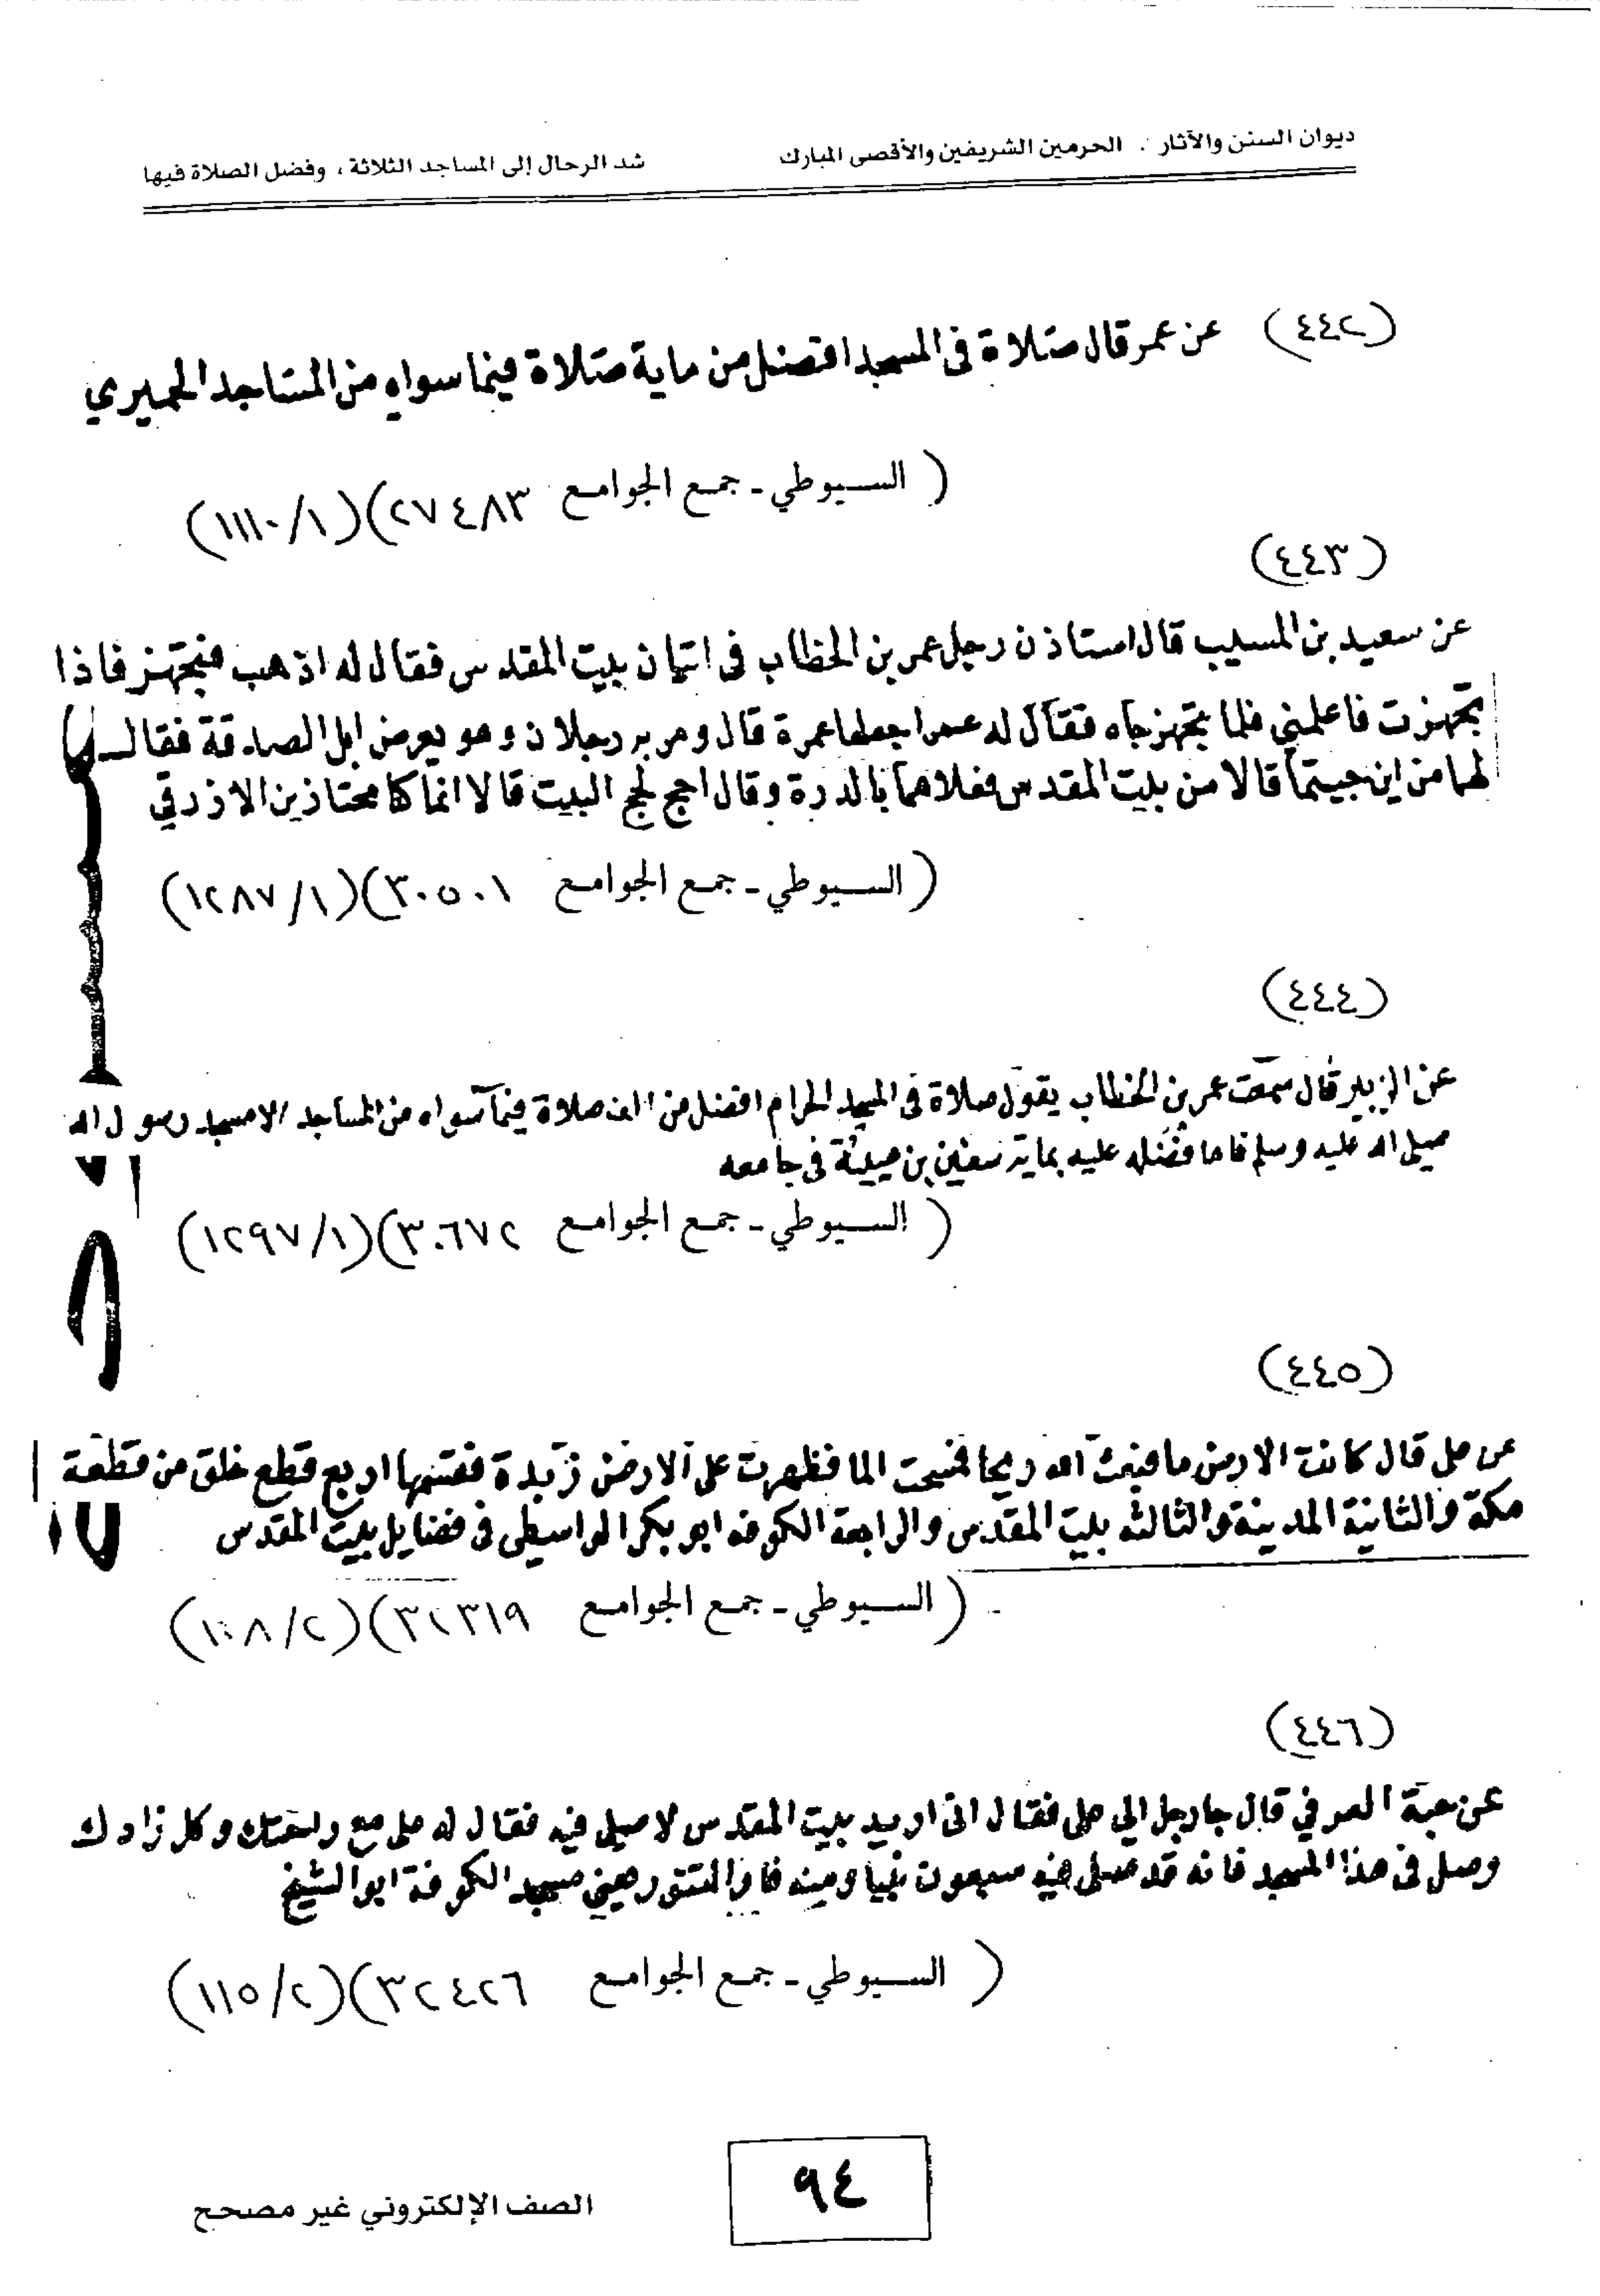 ديوان السنن والآثار . الحرمين الشريفين والأقصى المبارك شد الرحال إلى المساجد الثلاثة ، وفضل الصلاة فيها
(٤٤٢) عن عمر قال صلاة فى المسجد افضل من ماية صلاة فيما سواه من المساجد الحميري
( السيوطي - جمع الجوامع ٢٧٤٨٣) (١١١٠/١)
(٤٤٣)
عن سعيد بن المسيب قال استاذن رجل عمر بن الخطاب فى اتيان بيت المقدس فقال له اذهب فتجهز فاذا
تجهزت فاعلمني فلما تجهز جاه فقال له عمر اجعلها عمرة قال ومر به رجلان وهو يعرض ابل الصدقة فقال
لهما من اين جيتما قالا من بيت المقدس فعلاهما بالدرة وقال احج كحج البيت قالا انما كنا مجتازين الازرقي
( السيوطي - جمع الجوامع ٣٠٥٠١) (١٢٨٧/١)
(٤٤٤)
عن الزبير قال سمعت عمر بن الخطاب يقول صلاة فى المسجد الحرام افضل من الف صلاة فيما سواه من المساجد الا مسجد رسول الله
صلى الله عليه وسلم فانما فضله عليه بماية سفين بن عيينة فى جامعه
( السيوطي - جمع الجوامع ٣٠٦٧٢) (١٢٩٧/١)
(٤٤٥)
عن على قال كانت الارض ما فبعث الله ريحا فمسحت الما فظهرت على الارض زبدة فقسمها اربع قطع خلق من قطعة
مكة والثانية المدينة والثالثه بيت المقدس والرابعة الكوفه ابو بكر الواسطى فى فضايل بيت المقدس
( السيوطي - جمع الجوامع ٣٢٣١٩) (١٠٨/٢)
(٤٤٦)
عن حبة العرني قال جا رجل الي على فقال انى اريد بيت المقدس لاصلى فيه فقال له على مع راحلتك وكل زادك
وصل فى هذا المسجد فانه قد صلى فيه سبعون نبيا ومنه فار التنور يعني مسجد الكوفة ابو الشيخ
( السيوطي - جمع الجوامع ٣٢٤٢٦) (١١٥/٢)
٩٤
الصف الإلكتروني غير مصحح